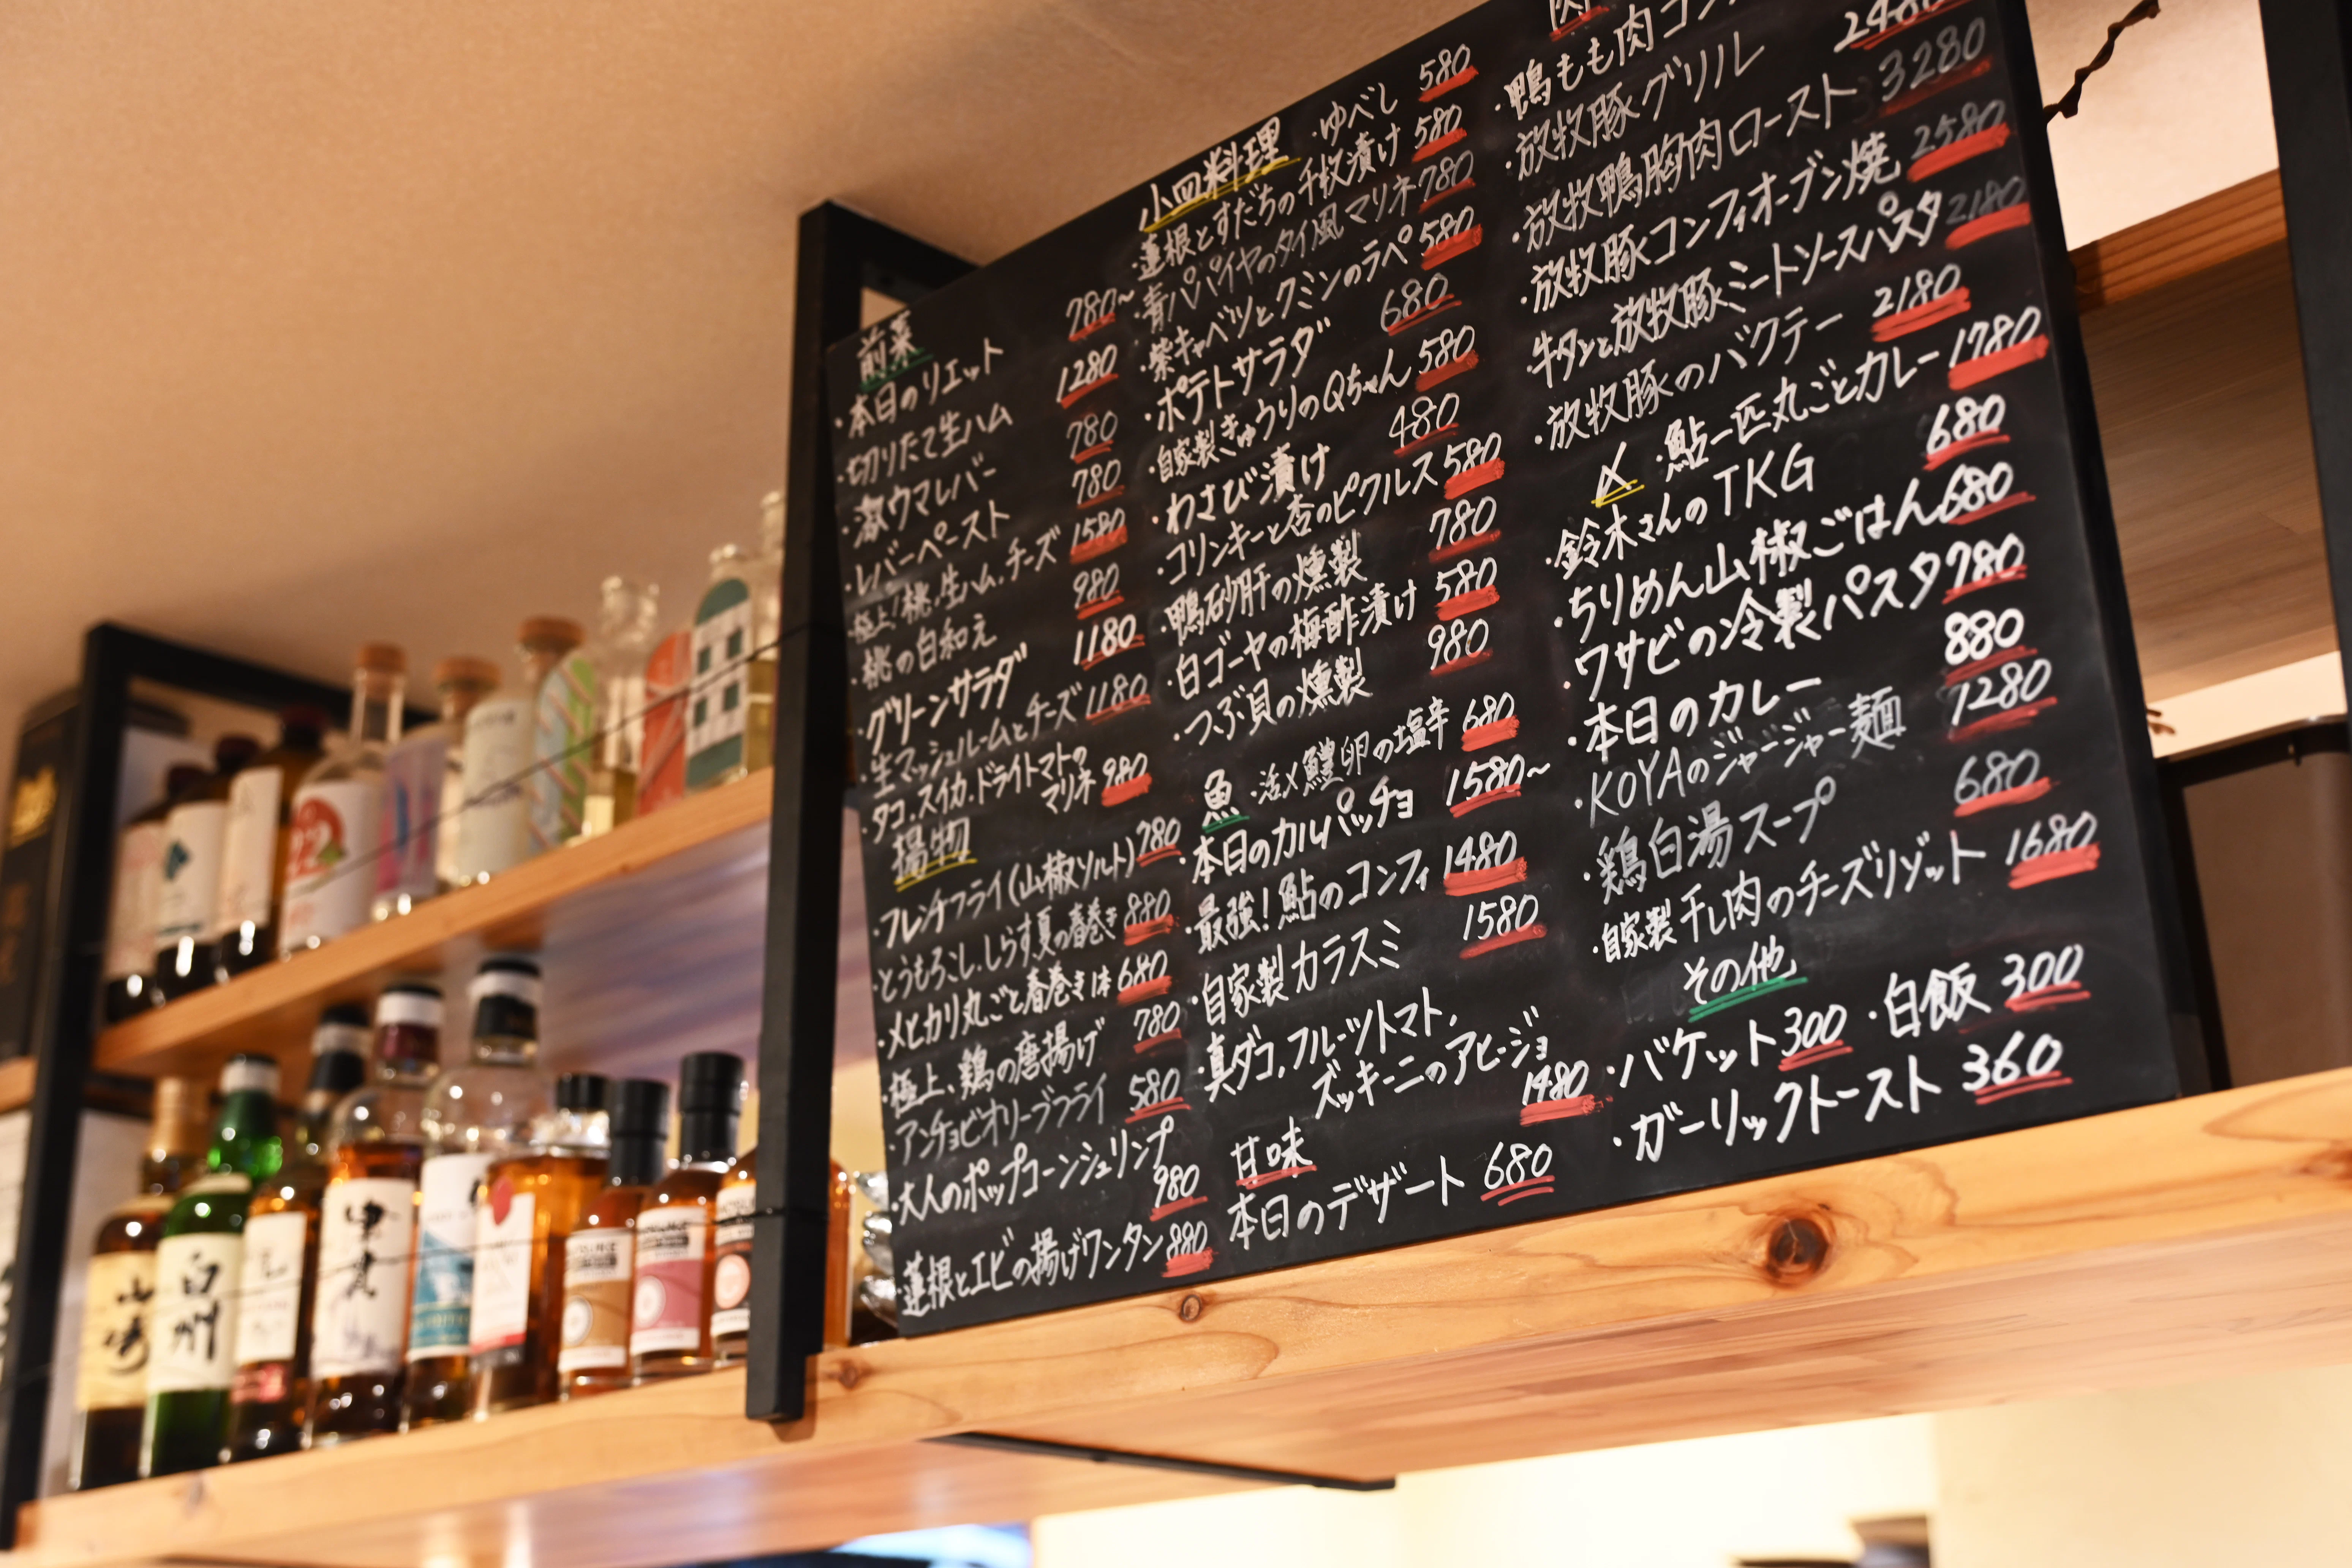 前菜
・本日のリエット 780~
・切りたて生ハム 1280
・激ウマレバー 780
・レバーペースト 780
・極上!桃、生ハム、チーズ 1580
・桃の白和え 980
・グリーンサラダ 1180
・生マッシュルームとチーズ 1180
・タコ、スイカ、ドライトマトの
マリネ 980
揚物
・フレンチフライ(山椒ソルト) 780
・とうもろこし、しらす夏の春巻き 880
・メヒカリ丸ごと春巻き1本 680
・極上、鶏の唐揚げ 780
・アンチョビオリーブフライ 580
・大人のポップコーンシュリンプ
980
・蓮根とエビの揚げワンタン 880
小皿料理 ・ゆべし 580
・蓮根とすだちの千枚漬け 580
・青パパイヤのタイ風マリネ 780
・紫キャベツとクミンのラペ 580
・ポテトサラダ 680
・自家製きゅうりのQちゃん 580
・わさび漬け 480
・コリンキーと杏のピクルス 580
・鴨砂肝の燻製 780
・白ゴーヤの梅酢漬け 580
・つぶ貝の燻製 980
魚 ・活〆鱧卵の塩辛 680
・本日のカルパッチョ 1580~
・最強!鮎のコンフィ 1480
・自家製カラスミ 1580
・真ダコ、フルーツトマト、
ズッキーニのアヒージョ
1480
甘味
本日のデザート 680
肉
・鴨もも肉コン
・放牧豚グリル 2480
・放牧鴨胸肉ロースト 3280
・放牧豚コンフィオーブン焼 2580
・牛タンと放牧豚ミートソースパスタ 2180
・放牧豚のバクテー 2180
〆 ・鮎一匹丸ごとカレー 1780
・鈴木さんのTKG 680
・ちりめん山椒ごはん 680
・ワサビの冷製パスタ 780
・本日のカレー 880
・KOYAのジャージャー麺 1280
・鶏白湯スープ 680
・自家製干し肉のチーズリゾット 1680
その他
・バケット 300 ・白飯 300
・ガーリックトースト 360
山崎
白州